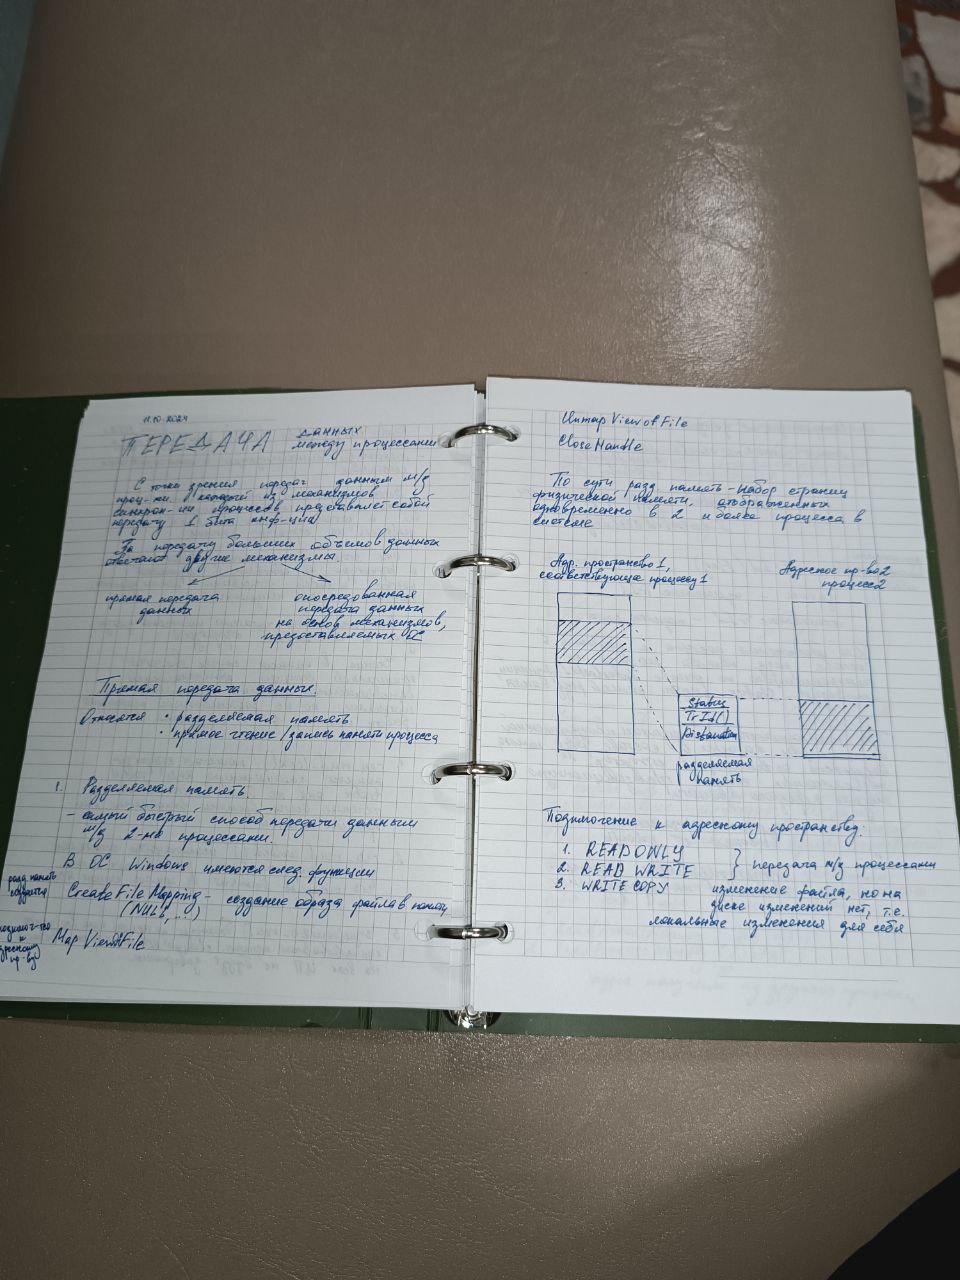 11.10.2024
ПЕРЕДАЧА данных
между процессами
С точки зрения передач данным м/д
проц-ми каждый из механизмов
синхрон-ии процессов представляет собой
передачу 1 бита инф-ции
За передачу больших объемов данных
отвечают другие механизмы.
прямая передача
данных
опосредованная
передача данных
на основ механизмов,
предоставляемых ОС
Прямая передача данных.
Относятся · разделяемая память
· прямое чтение/запись памяти процесса
1. Разделяемая память.
- самый быстрый способ передачи данным
м/д 2-мя процессами.
В ОС Windows имеются след. функции
разд память
создается
Create File Mapping - создание образа файла в память
(NULL, ...)
к
адресному
пр-ву
Map ViewOfFile
Unmap ViewOfFile
CloseHandle
По сути разд память - набор страниц
физической памяти, отображенных
одновременно в 2 и более процесса в
системе
Адр. пространство 1,
соответствующее процессу 1
Адресное пр-во 2
процесс 2
Status
TrId()
разделяемая
память
Подключение к адресному пространству.
1. READONLY
2. READ WRITE } передача м/д процессами
3. WRITE COPY изменение файла, но на
диске изменений нет, т.е.
локальные изменения для себя